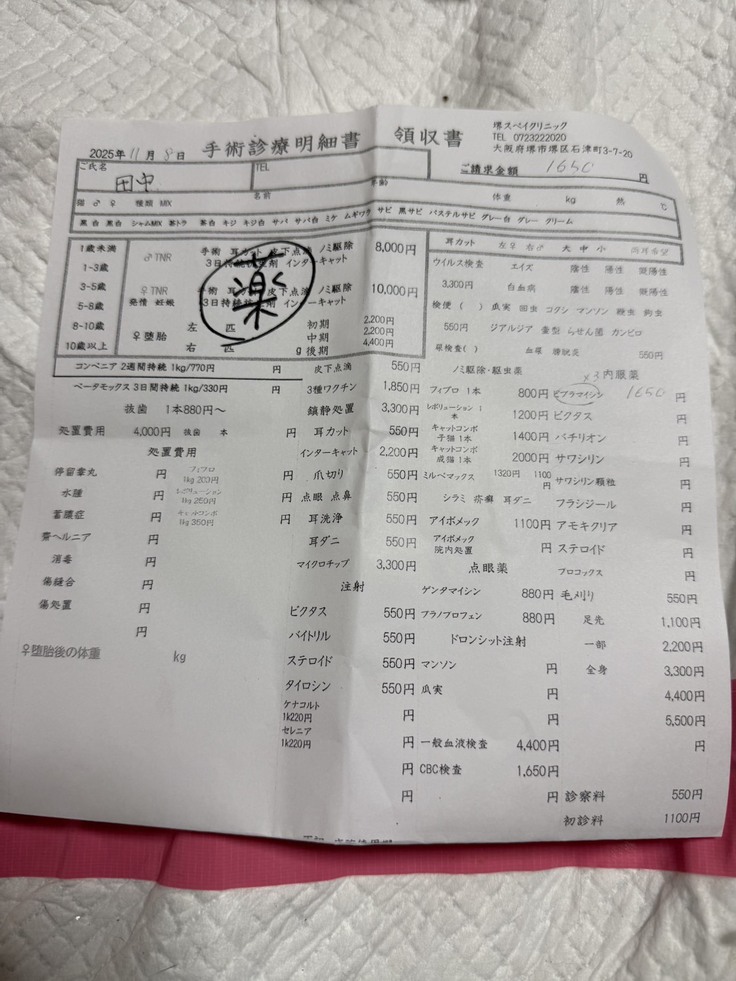 堺スペイクリニック
TEL 0723222020
大阪府堺市堺区石津町3-7-20
2025年 11月 8日 手術診療明細書 領収書
ご請求金額 1650 円
ご氏名 田中 TEL
猫 ♂ ♀ 種類 MIX 名前 年齢 体重 kg 熱 ℃
黒 白 黒白 シャムMIX 茶トラ 茶白 キジ キジ白 サバ サバ白 ミケ ムギワラ サビ 黒サビ パステルサビ グレー白 グレー クリーム
1歳未満
1-3歳
3-5歳
5-8歳
8-10歳
10歳以上
♂TNR 手術 耳カット 皮下点滴 ノミ駆除 8,000円
3日持続 インターキャット
♀TNR 手術 耳カット 皮下点滴 ノミ駆除 10,000円
発情 妊娠 3日持続 インターキャット
薬
♀堕胎 左 匹 初期 2,200円
中期 2,200円
右 匹 g 後期 4,400円
耳カット 左♀ 右♂ 大 中 小
ウイルス検査 エイズ 陰性 陽性 擬陽性
3,300円 白血病 陰性 陽性 擬陽性
検便 ( ) 瓜実 回虫 コクシ マンソン 鞭虫 鉤虫
550円 ジアルジア 壷型 らせん菌 カンピロ
尿検査( ) 血尿 膀胱炎 550円
コンベニア 2週間持続 1kg/770円 円
ベータモックス 3日間持続 1kg/330円 円
抜歯 1本880円～
処置費用 4,000円 抜歯 本 円
処置費用
停留睾丸 円
水腫 円
蓄膿症 円
臍ヘルニア 円
消毒 円
傷縫合 円
傷処置 円
円
♀堕胎後の体重 kg
フィプロ
1kg 200円
レボリューション
1kg 250円
キャットコンボ
1kg 350円
円
円
円
皮下点滴 550円
3種ワクチン 1,850円
鎮静処置 3,300円
耳カット 550円
インターキャット 2,200円
爪切り 550円
点眼 点鼻 550円
耳洗浄 550円
耳ダニ 550円
マイクロチップ 3,300円
注射
ビクタス 550円
バイトリル 550円
ステロイド 550円
タイロシン 550円
ケナコルト
1k220円 円
セレニア
1k220円 円
円
円
ノミ駆除・駆虫薬
フィプロ 1本 800円
レボリューション 1本 1200円
キャットコンボ
子猫 1本 1400円
キャットコンボ
成猫 1本 2000円
ミルベマックス 1320円 1100円
シラミ 疥癬 耳ダニ
アイボメック 1100円
アイボメック
院内処置 円
点眼薬
ゲンタマイシン 880円
プラノプロフェン 880円
ドロンシット注射
マンソン 円
瓜実 円
円
一般血液検査 4,400円
CBC検査 1,650円
円
×3 内服薬
ビブラマイシン 1650 円
ビクタス 円
バチリオン 円
サワシリン 円
サワシリン顆粒 円
フラシジール 円
アモキクリア 円
ステロイド 円
プロコックス 円
毛刈り 550円
足先 1,100円
一部 2,200円
全身 3,300円
4,400円
5,500円
円
診察料 550円
初診料 1100円